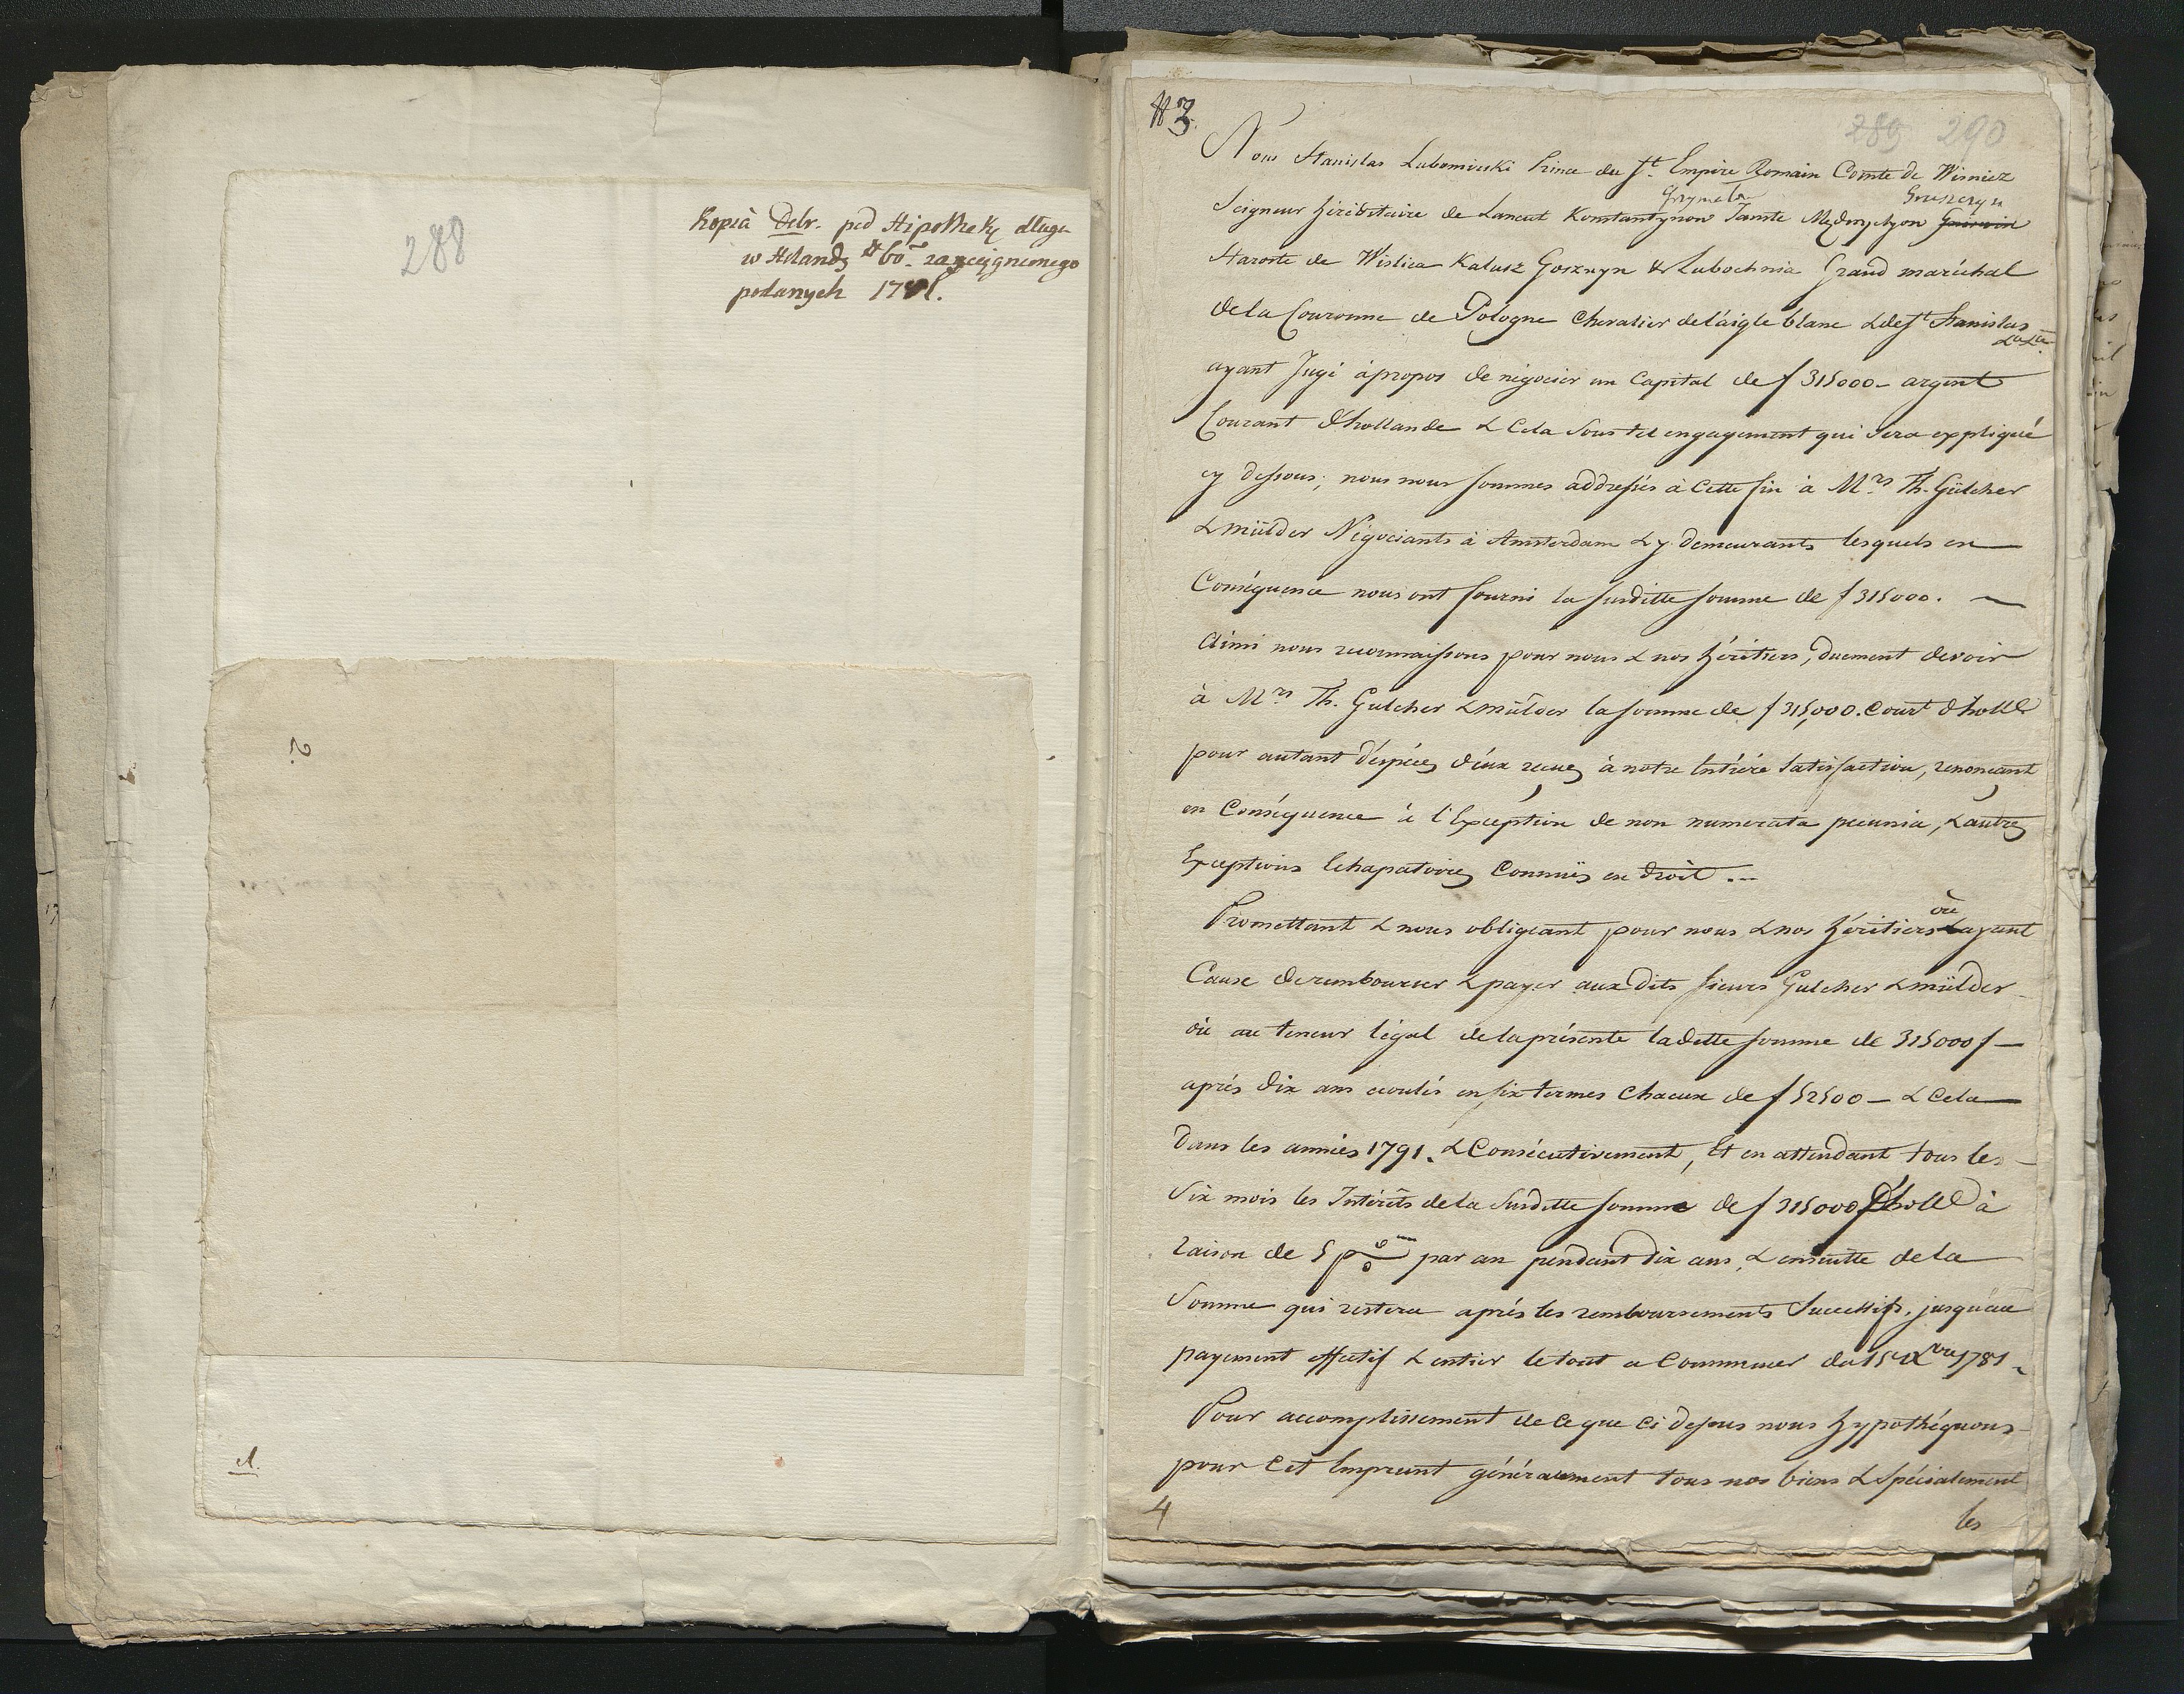 288
Kopia Debr. pod Hipothekę długu
w Holandy zaciągnionego
podanych 1781.
2.
A.
#3.
289 290
Nous Stanislas Lubomirski Prince du St. Empire Romain Comte de Wisnicz
Grzymala Gruszczyn
Seigneur héréditaire de Lancut Konstantynow Jamte Mędrzychow
Staroste de Wislica Kalusz Goszczyn & Lubochnia Grand maréchal
de la Couronne de Pologne Chevalier de l'aigle blanc & de St Stanislas
&a &a
ayant Jugé àpropos de négocier un Capital de f 315000 - argent
Courant d'hollande & Cela sous tel engagement qui sera expliqué
cy dessous; nous nous sommes addressés à Cette fin à Mrs Th. Gülcher
& mülder Négociants à Amsterdam & y demeurants lesquels en
Conséquence nous ont fourni la susditte somme de f 315000. —
Ainsi nous reconnaissons pour nous & nos héritiers, duement devoir
à Mrs Th. Gulcher & mülder la somme de f 315,000. Court d'holle
pour autant d'éspéces d'eux recues à notre Entiére Satisfaction, renoncant
en Conséquence à l'Exception de non numerata pecunia, & autres
Exceptions Echapatoires Connuës en droit . --
où
Promettant & nous obligeant pour nous & nos héritiers & ayant
Cause de rembourser & payer aux dits sieurs Gulcher & mülder
où au teneur légal de la présente la ditte somme de 315000 f —
aprés dix ans ecoulés en six termes Chacun de f 52500 — & Cela
dans les années 1791. & Consécutivement, Et en attendant tous les
Six mois les Intérêts de la Susditte somme de f 315000 d'holle à
raison de 5 p% par an pendant dix ans, & ensuitte de la
Somme qui restera aprés les remboursements Successifs, jusqu'au
payement effectif & entier le tout a Commencer du 15 Xbre 1781.
Pour accomplissement de ce que ci dessus nous hypothéquons
pour Cet Emprunt généralement tous nos biens & Spécialement
4 les